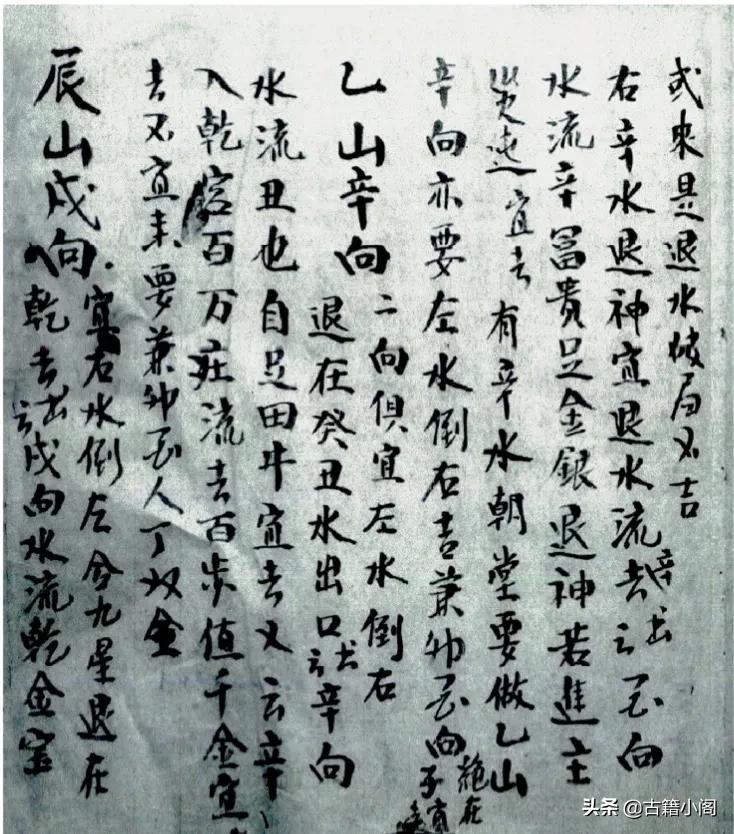 或來是退水破局不吉
右辛水退神宜退水流去辛出訣云酉向
水流辛富貴足金銀退神若進主
災速宜去 有辛水朝堂要做乙山
辛向亦要左水倒右吉兼卯酉向絕在子宜
乙山辛向 二向俱宜左水倒右
退在癸丑水出口訣云辛向
水流丑也自足田牛宜去又云辛
入乾宮百万庄流去百步值千金宜
去不宜來要兼卯酉人丁双全
辰山戌向 宜右水倒左合九星退在
乾去訣云戌向水流乾金宝
头条 @古籍小阁